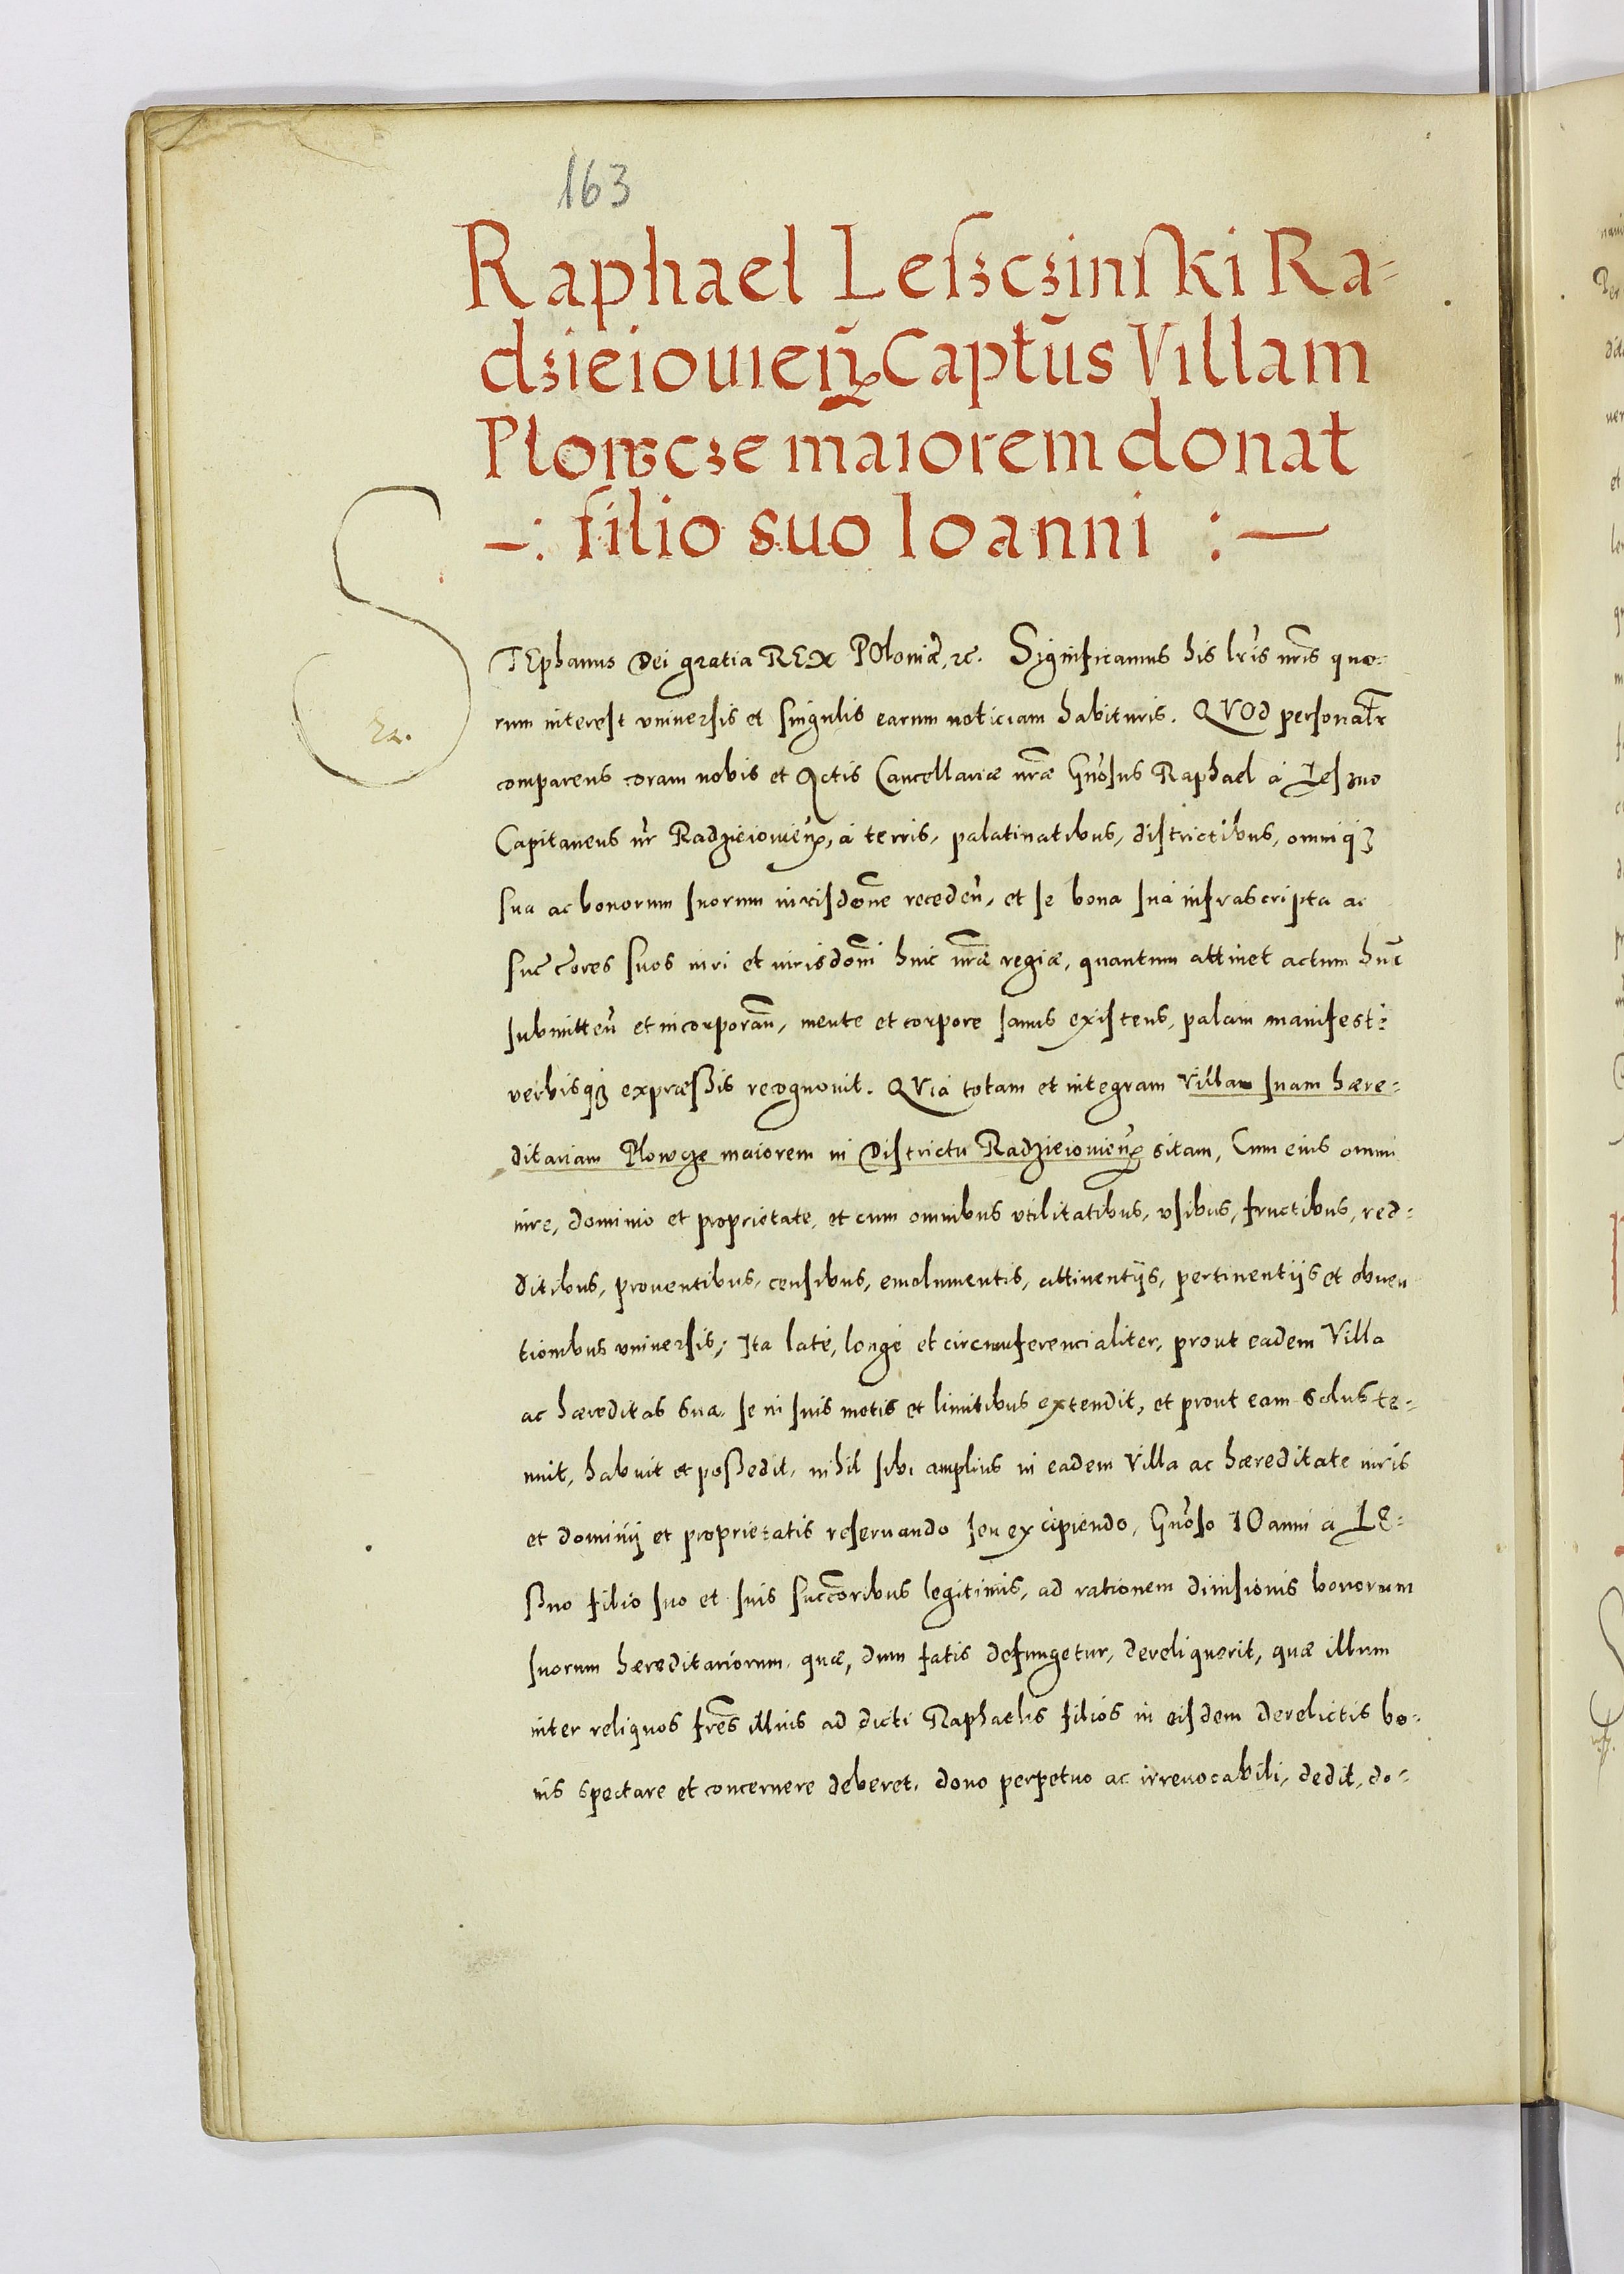 163
Raphael Leſzczinſki Ra=
dzieiouień Capt̄us Villam
Plowcze maiorem donat
-: filio suo Ioanni :-
STEphanus Dei gratia REX POloniæ, &c. Significamus his lr̄is nr̄is quo-
rum interest vniuersis et singulis earum noticiam habituris. QVOd personalr̄
comparens coram nobis et Actis Cancellariæ nr̄æ Gn̄osus Raphael à Leszno
Capitaneus nr̄ Radzieiouień, à terris, palatinatibus, districtibus, omniq3
sua ac bonorum suorum iurisdōne recedeń, et se bona sua infrascripta ac
succ̄ores suos iuri et iurisdōni huic nr̄æ regiæ, quantum attinet actum hūc
submitteń et incorporań, mente et corpore sanus existens, palam manifestè
verbisq3 expræßis recognouit. QVia totam et integram Villam suam hære-
ditariam Plowcze maiorem in Districtu Radzieiouień sitam, Cum eius omni
iure, dominio et proprietate, et cum omnibus vtilitatibus, vsibus, fructibus, red-
ditibus, prouentibus, censibus, emolumentis, attinentijs, pertinentijs et obuen
tionibus vniuersis; Ita latè, longè et circumferencialiter, prout eadem Villa
ac hæreditas sua se in suis metis et limitibus extendit, et prout eam solus te-
nuit, habuit et poßedit, nihil sibi amplius in eadem Villa ac hæreditate iuris
et dominij et proprietatis reseruando seu excipiendo, Gn̄oso IOanni à LE-
ßno filio suo et suis succ̄oribus legitimis, ad rationem diuisionis bonorum
suorum hæreditariorum, quæ, dum fatis defungetur, dereliquerit, quæ illum
inter reliquos fr̄es illius ad dicti Raphaelis filios in eisdem derelictis bo-
nis spectare et concernere deberet, dono perpetuo ac irreuocabili, dedit, do-